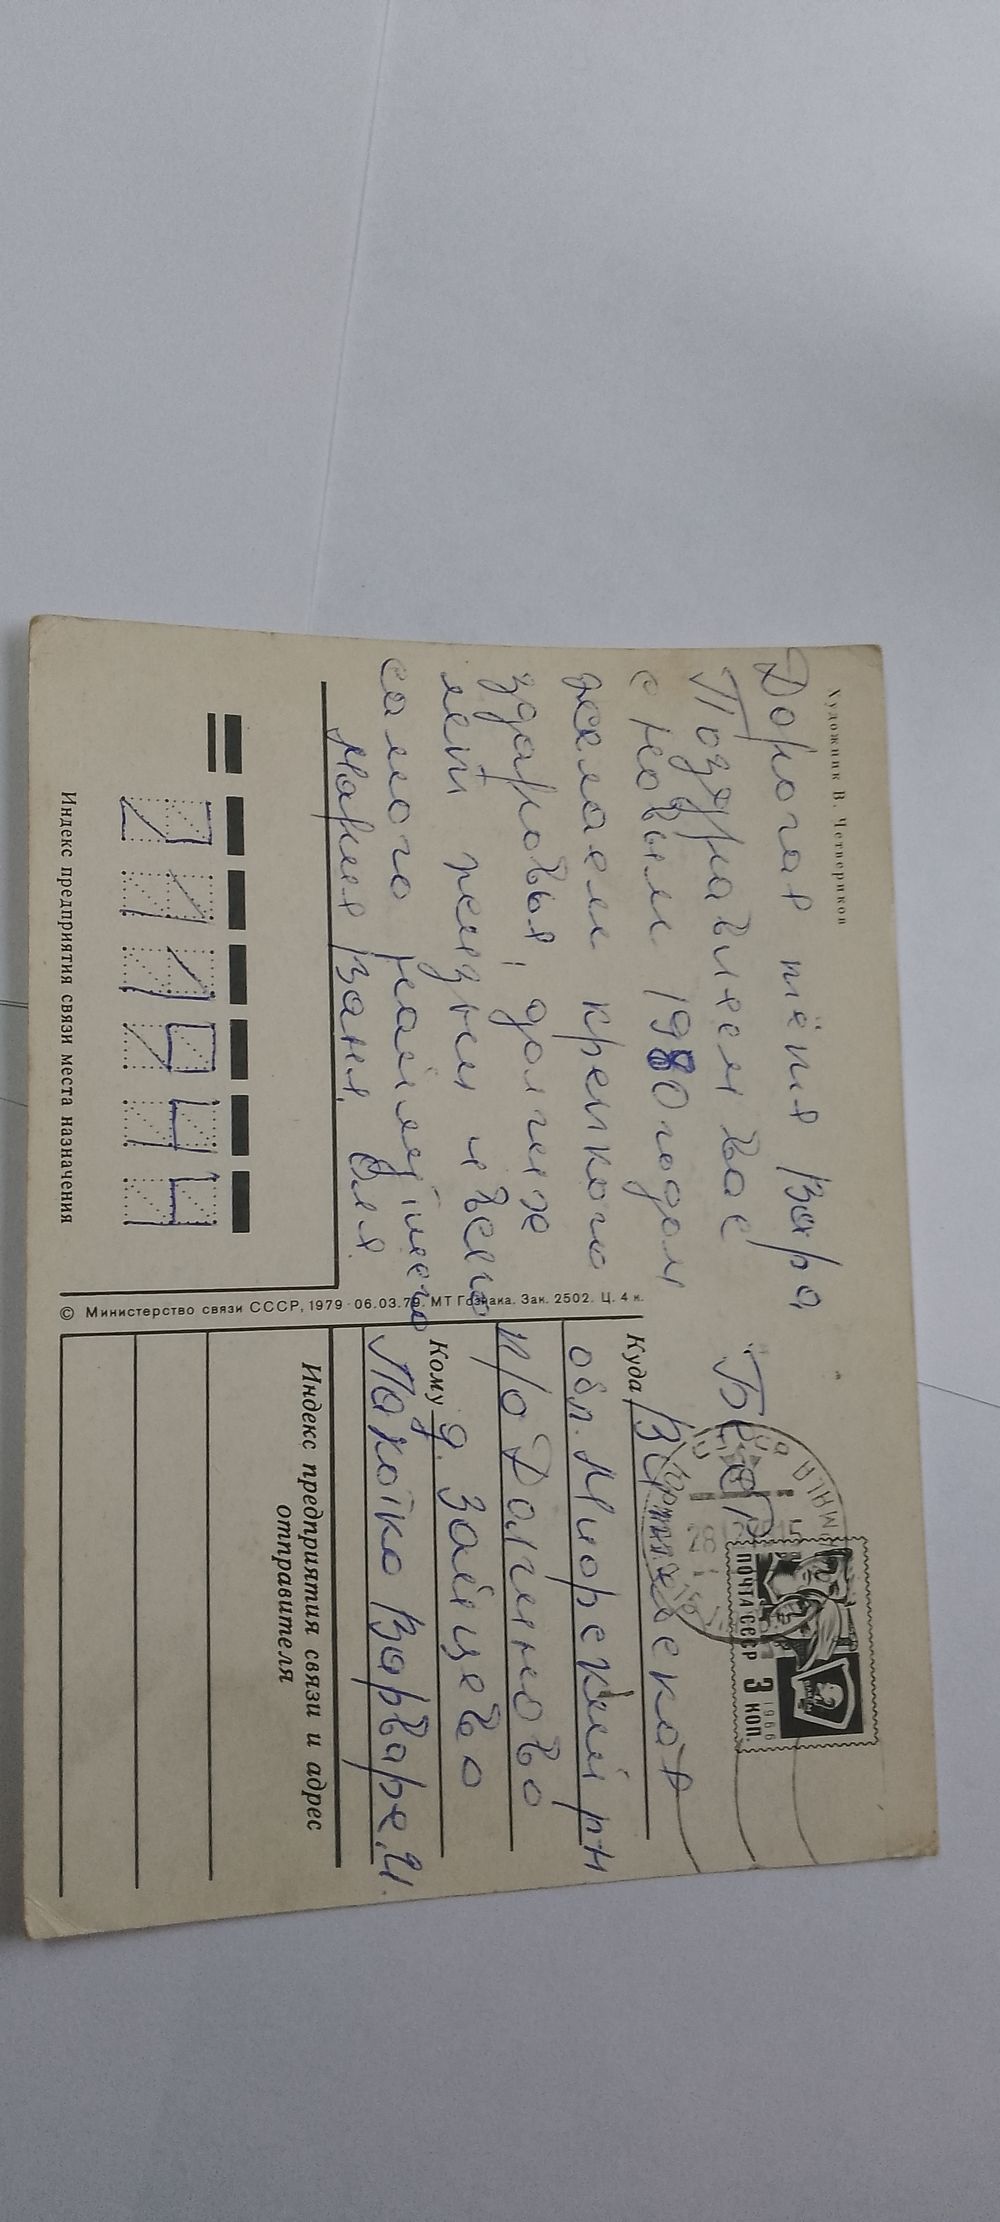 Художник В. Четвериков
Дорогая тётя Вара
Поздравляем вас
с новым 1980 годом
желаем крепкого
здаровья, долгих
лет жизни и всего
самого наилутшего
Мария Ваня. Оля.
Индекс предприятия связи места назначения
211944
© Министерство связи СССР, 1979 · 06.03.79. МТ Гознака. Зак. 2502. Ц. 4 к.
БССР
ПОЧТА СССР 3 КОП.
1966
Куда Витебская
обл. Миорский рн
п/о Долгиново
д. Зайцево
Кому
Пакойко Варваре.И.
Индекс предприятия связи и адрес
отправителя